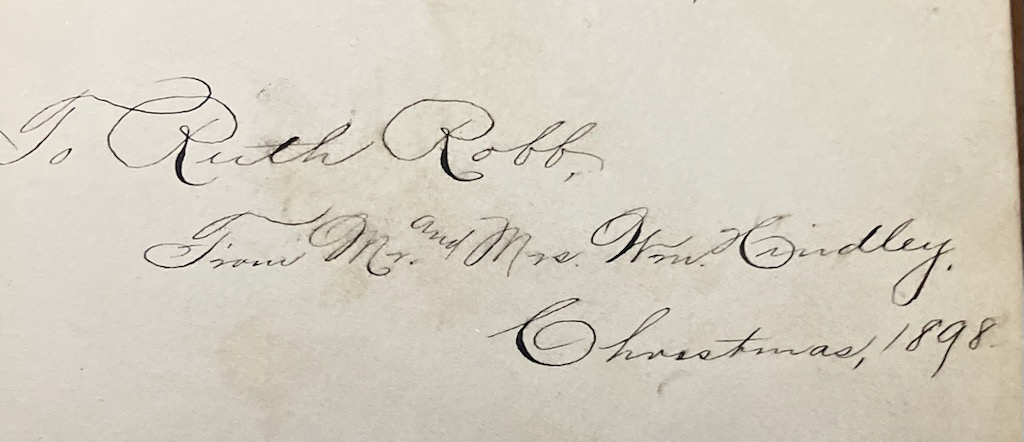 To Ruth Robb,
From Mr. and Mrs. Wm. Hindley.
Christmas, 1898.